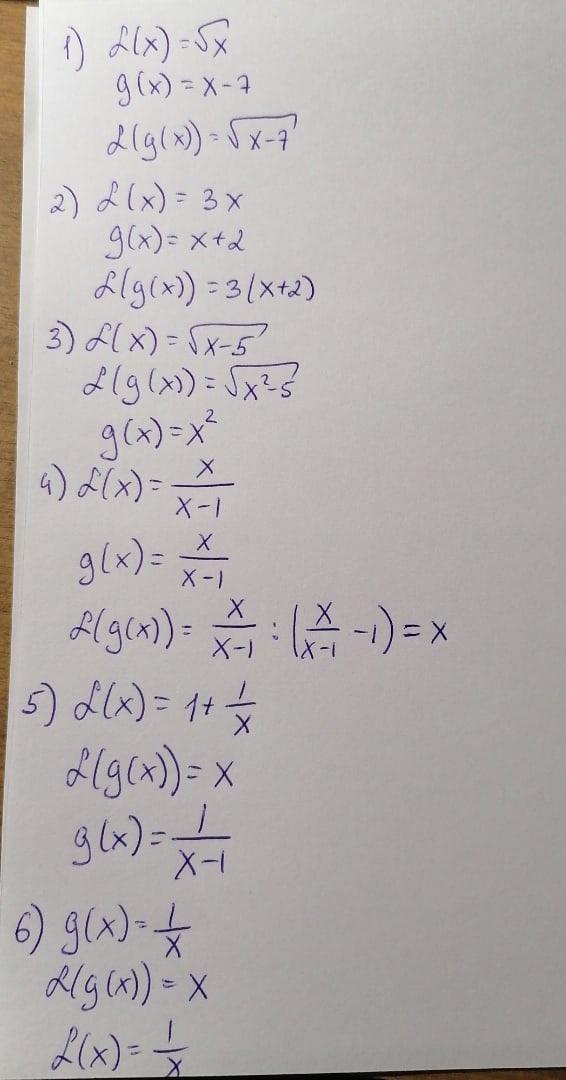 1) f(x)=√x
g(x)=x-7
f(g(x))=√x-7
2) f(x)=3x
g(x)=x+2
f(g(x))=3(x+2)
3) f(x)=√x-5
f(g(x))=√x²-5
g(x)=x²
4) f(x)=x/x-1
g(x)=x/x-1
f(g(x))=x/x-1:(x/x-1-1)=x
5) f(x)=1+1/x
f(g(x))=x
g(x)=1/x-1
6) g(x)=1/x
f(g(x))=x
f(x)=1/x